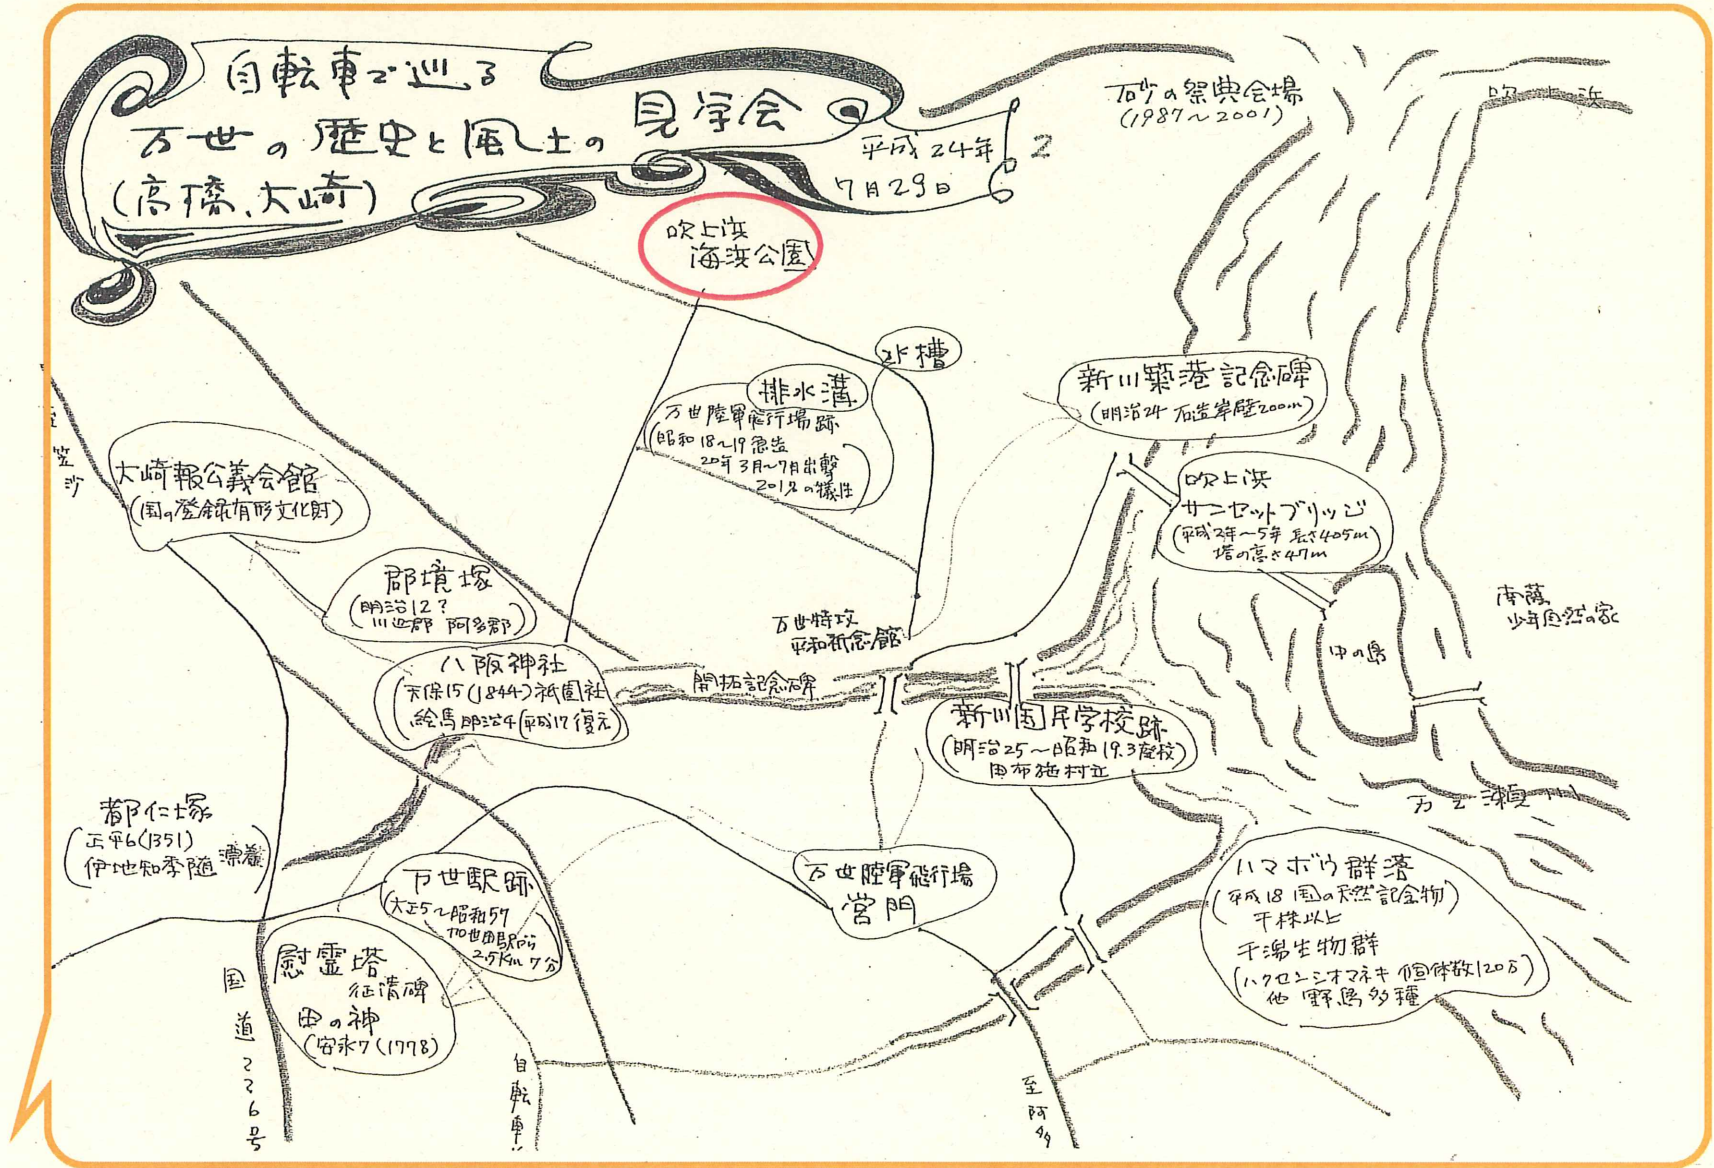 自転車で巡る
万世の歴史と風土の 見学会
(高橋、大崎)
平成24年
7月29日
2
砂の祭典会場
(1987〜2001)
吹上浜
吹上浜
海浜公園
水槽
排水溝
万世陸軍飛行場跡
昭和18〜19急造
20年3月〜7月出撃
201名の犠牲
新川築港記念碑
(明治24 石造岸壁200m)
吹上浜
サンセットブリッジ
(平成2年〜5年 長さ405m)
塔の高さ47m
笠沙
大崎報公義会館
(国の登録有形文化財)
郡境塚
(明治12?
川辺郡 阿多郡)
南薩
少年自然の家
中の島
万世特攻
平和祈念館
八阪神社
天保15(1844)祇園社
絵馬明治4(平成17復元)
開拓記念碑
新川国民学校跡
(明治25〜昭和19.3廃校)
田布施村立
万之瀬川
都仁塚
(正平6(1351)
伊地知季随 漂着)
万世駅跡
(大正5〜昭和57
加世田駅から
2.5Km 7分)
万世陸軍飛行場
営門
ハマボウ群落
(平成18 国の天然記念物)
千株以上
干潟生物群
(ハクセンシオマネキ 個体数120万)
他 野鳥多種
慰霊塔
征清碑
田の神
(安永7(1778)
国道226号
自転車
至阿多